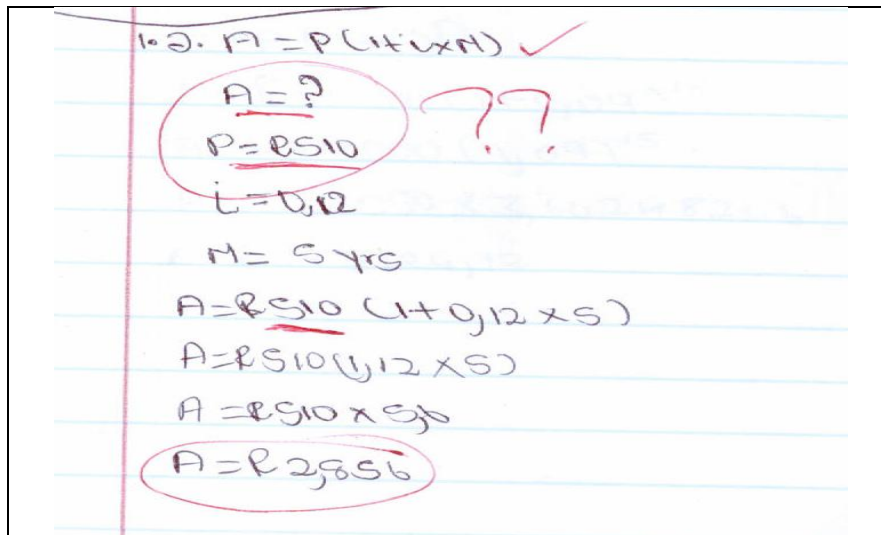 1.2. A = P(1+i×n) ✓
A = ? ??
P = R510
i = 0,12
n = 5 yrs
A = R510 (1+0,12 × 5)
A = R510(1,12 × 5)
A = R510 × 5,6
A = R2,856